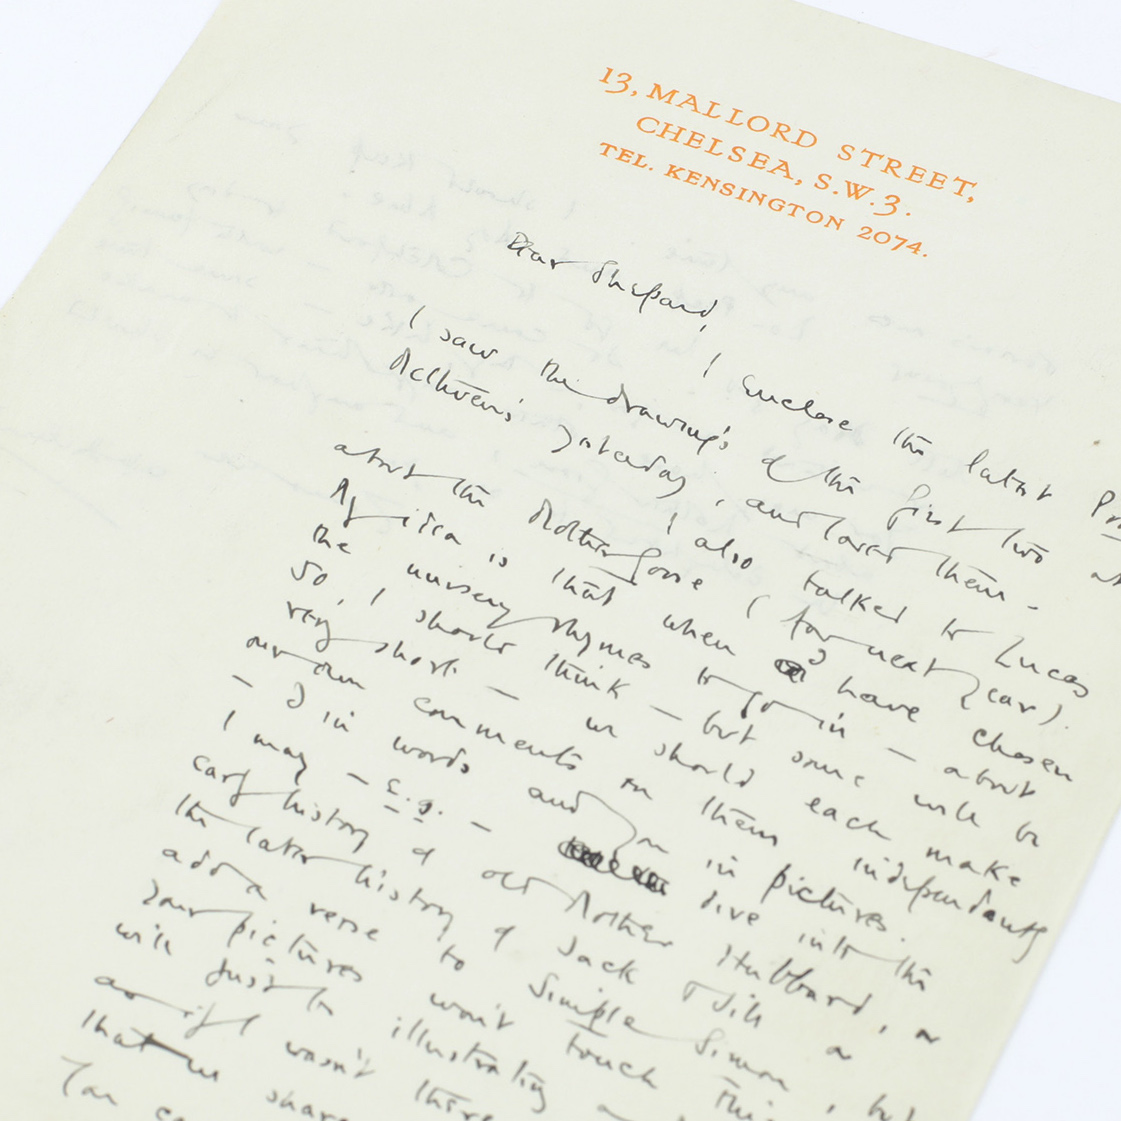 13, MALLORD STREET,
CHELSEA, S.W.3.
TEL. KENSINGTON 2074.
Dear Shepard,
I enclose the latest
I saw the drawings of the first two at
Methuens' yesterday, and loved them -
I also talked to Lucas
about the Mother Goose (for next year).
My idea is that when we have chosen
the nursery rhymes to go in - about
50, I should think - but some will be
very short - we should each make
our own comments on them independently
- I in words and you in pictures.
I may - e.g. - dive into the
early history of old Mother Hubbard, or
the later history of Jack & Jill or
add a verse to Simple Simon, but
your pictures won't touch this
will just be illustrating
as if I wasn't there
that we share
You